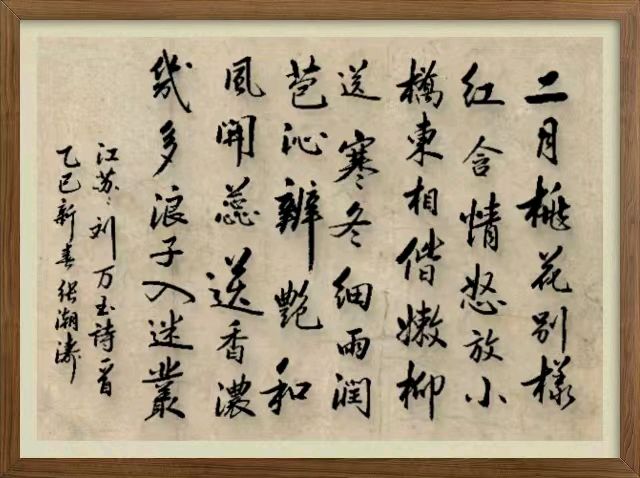 二月桃花别樣
红含情怒放小
橋東相偕嫩柳
送寒冬细雨潤
苞沁瓣艷和
風開蕊送香濃
幾多浪子入迷叢
江苏刘万玉詩一首
乙巳新春张潮涛